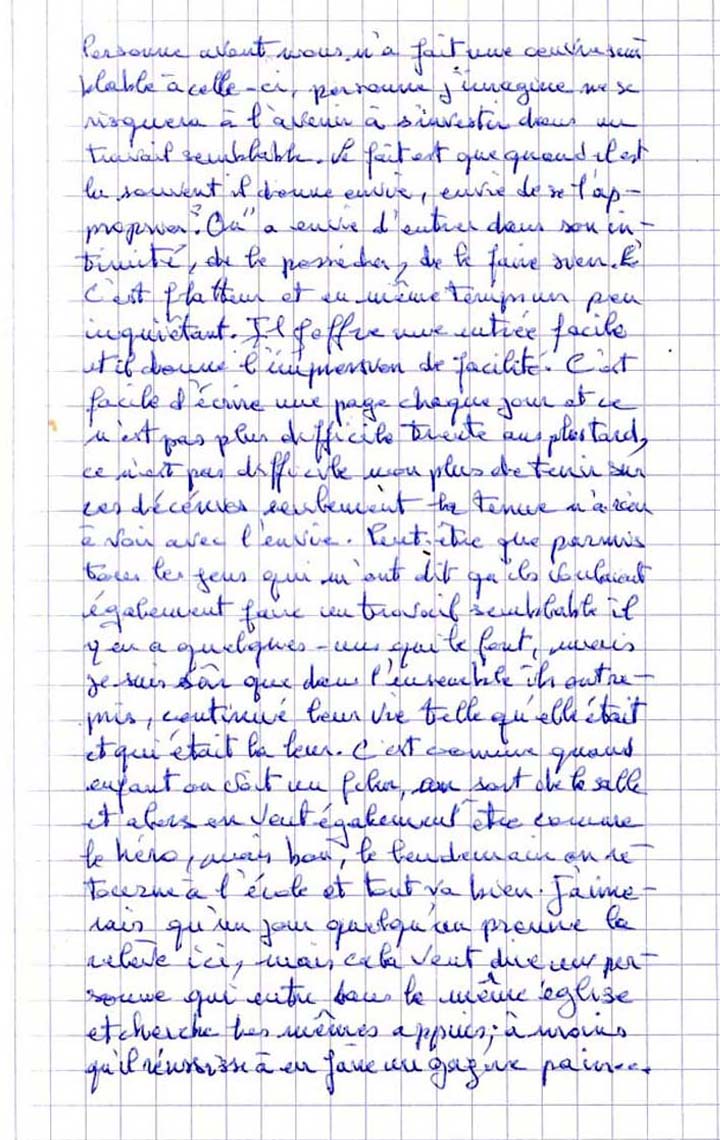 Personne avant nous n'a fait une oeuvre sem
blable à celle-ci, personne j'imagine ne se
risquera à l'avenir à s'investir dans un
travail semblable. Le fait est que quand il est
lu souvent il donne envie, envie de se l'ap-
proprier? On a envie d'entrer dans son in-
timité, de le posséder, de le faire sien.
C'est flatteur et en même temps un peu
inquiétant. Il offre une entrée facile
et il donne l'impression de facilité. C'est
facile d'écrire une page chaque jour et ce
n'est pas plus difficile trente ans plus tard,
ce n'est pas difficile non plus de tenir sur
ces décénies seulement la tenue n'a rien
à voir avec l'envie. Peut-être que parmis
tous les gens qui m'ont dit qu'ils voulaient
également faire un travail semblable il
y en a quelques-uns qui le font, mais
je suis sûr que dans l'ensemble ils ont re-
pris, continué leur vie telle qu'elle était
et qui était la leur. C'est comme quand
enfant on voit un film, on sort de la salle
et alors on veut également être comme
le héro, mais bon, le lendemain on re-
tourne à l'école et tout va bien. J'aime-
rais qu'un jour quelqu'un prenne la
relève ici, mais cela veut dire une per-
sonne qui entre dans la même église
et cherche les mêmes appuis; à moins
qu'il réussisse à en faire un gagne pain...